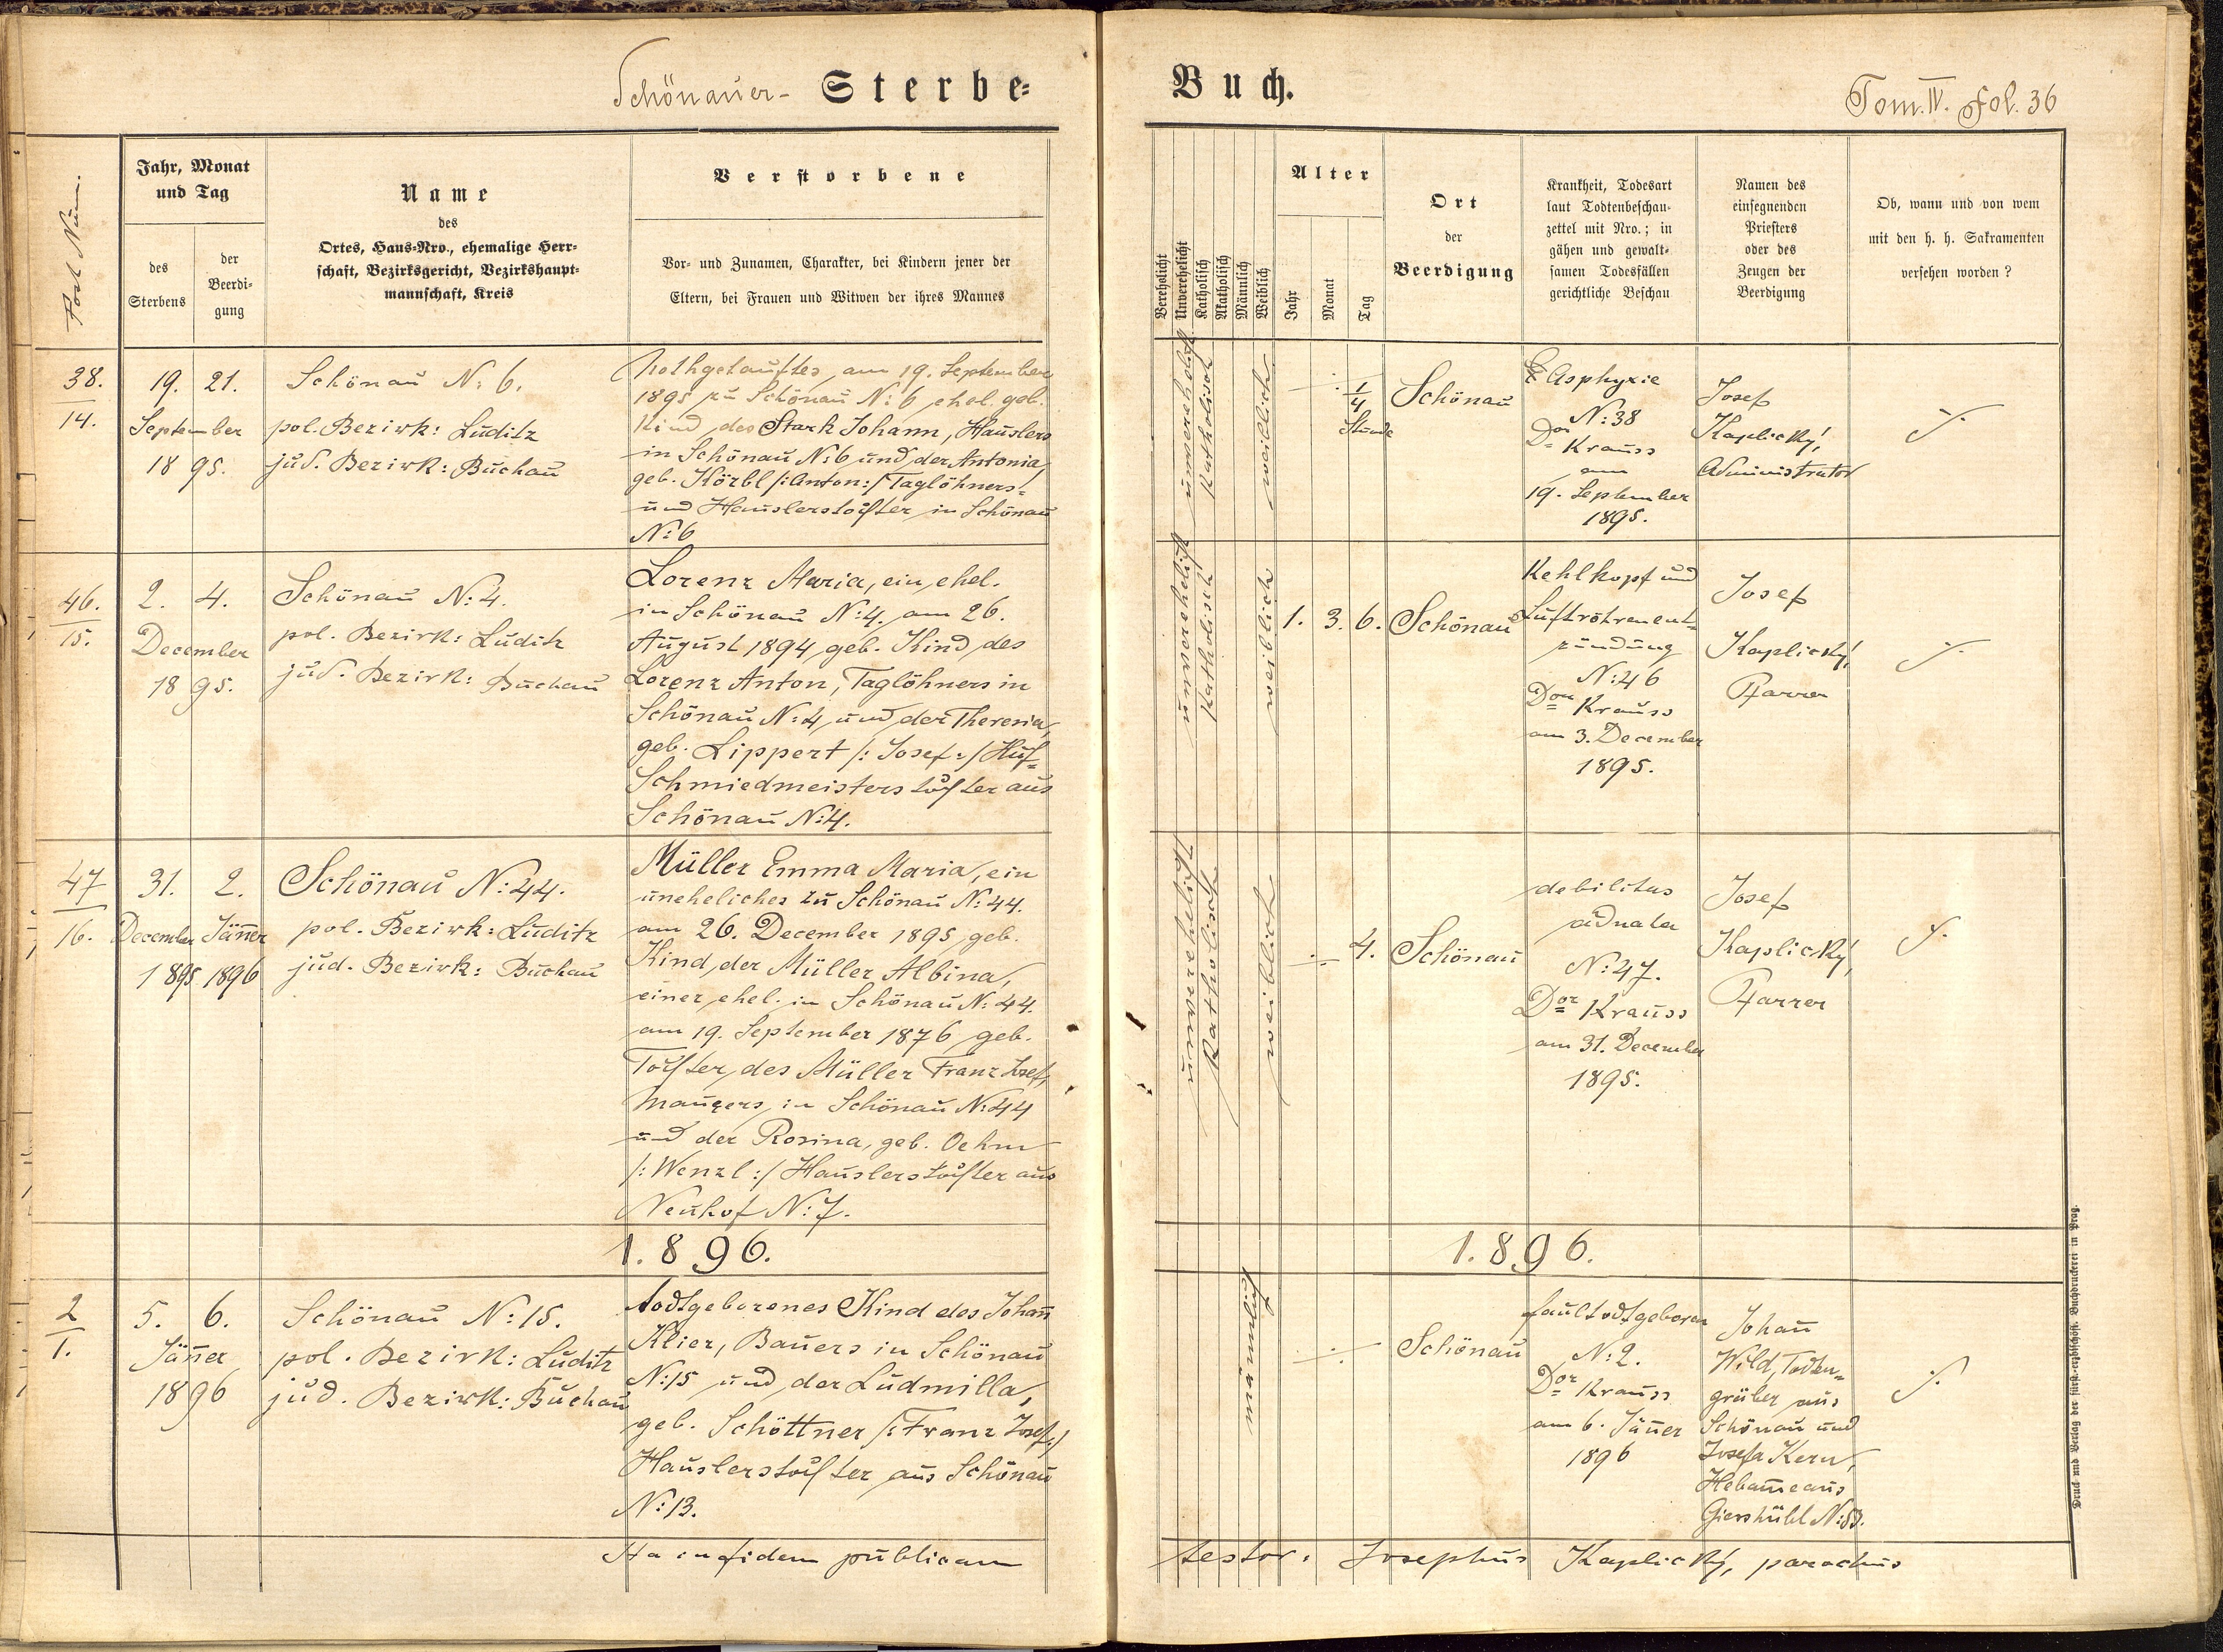 Schönauer- Sterbe-
Buch.
Tom. IV. Fol. 36
Post Num.
Jahr, Monat
und Tag
des
Sterbens
der
Beerdi-
gung
Name
des
Ortes, Haus-Nro., ehemalige Herr-
schaft, Bezirksgericht, Bezirkshaupt-
mannschaft, Kreis
Verstorbene
Vor- und Zunamen, Charakter, bei Kindern jener der
Eltern, bei Frauen und Witwen der ihres Mannes
Verehelicht
Unverehelicht
Katholisch
Akatholisch
Männlich
Weiblich
Alter
Jahr
Monat
Tag
Ort
der
Beerdigung
Krankheit, Todesart
laut Todtenbeschau-
zettel mit Nro.; in
gähen und gewalt-
samen Todesfällen
gerichtliche Beschau
Namen des
einsegnenden
Priesters
oder des
Zeugen der
Beerdigung
Ob, wann und von wem
mit den h. h. Sakramenten
versehen worden?
38.
14.
19. 21.
September
18 95.
Schönau N: 6.
pol. Bezirk: Luditz
jud. Bezirk: Buchau
Nothgetauftes, am 19. September
1895 zu Schönau N: 6 ehel. geb.
Kind des Stark Johann, Häuslers
in Schönau N: 6 und der Antonia,
geb. Körbl /:Anton:/ Taglöhners-
und Häuslerstochter in Schönau
N: 6
unverehelicht
Katholisch
weiblich
1/4
Stunde
Schönau
Asphyxie
N: 38
Dor Krauss
am
19. September
1895.
Josef
Kaplický,
Administrator
./.
46.
15.
2. 4.
December
18 95.
Schönau N: 4.
pol. Bezirk: Luditz
jud. Bezirk: Buchau
Lorenz Maria, ein ehel.
in Schönau N: 4. am 26.
August 1894 geb. Kind des
Lorenz Anton, Taglöhners in
Schönau N: 4, und der Theresia,
geb. Lippert /: Josef :/ Huf-
Schmiedmeisterstochter aus
Schönau N: 4.
unverehelicht
Katholisch
weiblich
1. 3. 6.
Schönau
Kehlkopf und
Luftröhrenent-
zündung
N: 46
Dor Krauss
am 3. December
1895.
Josef
Kaplický,
Pfarrer
./.
47
16.
31. 2.
December Jäner
1895. 1896
Schönau N: 44.
pol. Bezirk: Luditz
jud. Bezirk: Buchau
Müller Emma Maria, ein
uneheliches zu Schönau N: 44.
am 26. December 1895 geb.
Kind, der Müller Albina,
einer ehel. in Schönau N: 44.
am 19. September 1876 geb.
Tochter des Müller Franz Josef,
Maurers in Schönau N: 44
und der Rosina, geb. Oehm
/: Wenzl :/ Häuslerstochter aus
Neuhof N: 7.
unverehelicht
Katholisch
weiblich
4.
Schönau
debilitas
adnata
N: 47.
Dor Krauss
am 31. December
1895.
Josef
Kaplický,
Pfarrer
./.
1.896.
1.896.
2
1.
5. 6.
Jäner
1896
Schönau N: 15.
pol. Bezirk: Luditz
jud. Bezirk: Buchau
todtgeborenes Kind des Johan̄
Klier, Bauers in Schönau
N: 15 und der Ludmilla,
geb. Schöttner /: Franz Josef :/
Häuslerstochter aus Schönau
N: 13.
männlich
Schönau
faultodtgeboren
N: 2.
Dor Krauss
am 6. Jäner
1896
Johan̄
Wild, Todten-
gräber aus
Schönau und
Josefa Kern,
Hebam̄e aus
Giershübl N: 53.
./.
Ita in fidem publicam
testor: Josephus Kaplický, parochus
Druck und Verlag der fürst-erzbischöfl. Buchdruckerei in Prag.